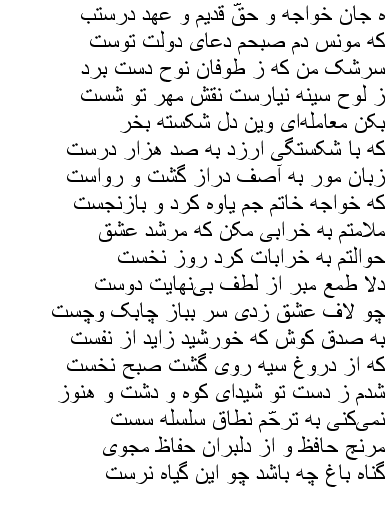 ه جان خواجه و حقّ قدیم و عهد درستب
که مونس دم صبحم دعای دولت توست
سرشک من که ز طوفان نوح دست برد
ز لوح سینه نیارست نقش مهر تو شست
بکن معامله‌ای وین دل شکسته بخر
که با شکستگی ارزد به صد هزار درست
زبان مور به آصف دراز گشت و رواست
که خواجه خاتم جم یاوه کرد و بازنجست
ملامتم به خرابی مکن که مرشد عشق
حوالتم به خرابات کرد روز نخست
دلا طمع مبر از لطف بی‌نهایت دوست
چو لاف عشق زدی سر بباز چابک وچست
به صدق کوش که خورشید زاید از نفست
که از دروغ سیه روی گشت صبح نخست
شدم ز دست تو شیدای کوه و دشت و هنوز
نمی‌کنی به ترحّم نطاق سلسله سست
مرنج حافظ و از دلبران حفاظ مجوی
گناه باغ چه باشد چو این گیاه نرست